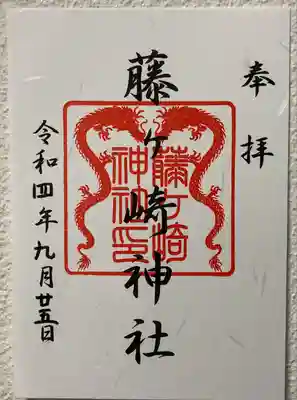 奉拝
藤ヶ崎神社
藤ケ崎
神社印
令和四年九月廿五日